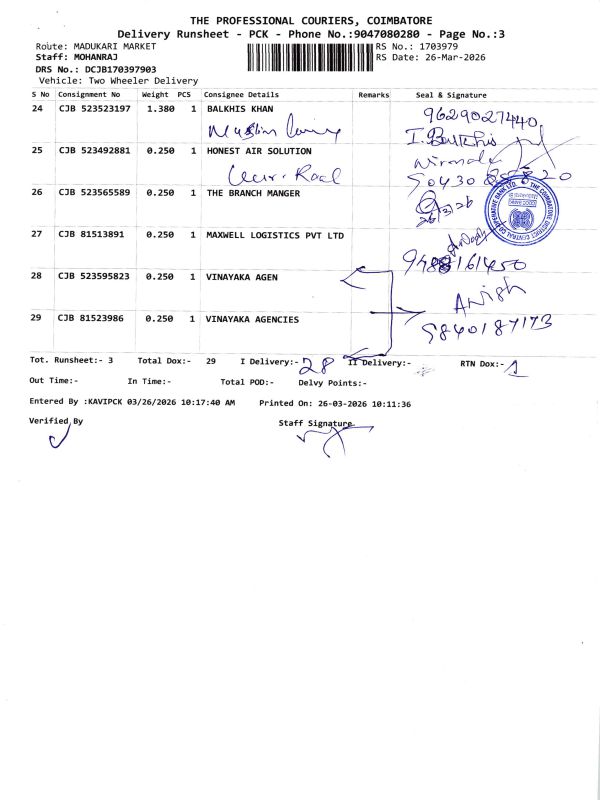 THE PROFESSIONAL COURIERS, COIMBATORE
Delivery Runsheet - PCK - Phone No.:9047080280 - Page No.:3
Route: MADUKARI MARKET RS No.: 1703979
Staff: MOHANRAJ RS Date: 26-Mar-2026
DRS No.: DCJB170397903
Vehicle: Two Wheeler Delivery
S No Consignment No Weight PCS Consignee Details Remarks Seal & Signature
24 CJB 523523197 1.380 1 BALKHIS KHAN 9629027440
I. Balkhis
25 CJB 523492881 0.250 1 HONEST AIR SOLUTION
26 CJB 523565589 0.250 1 THE BRANCH MANGER
26/3/26
27 CJB 81513891 0.250 1 MAXWELL LOGISTICS PVT LTD
28 CJB 523595823 0.250 1 VINAYAKA AGEN
29 CJB 81523986 0.250 1 VINAYAKA AGENCIES
Tot. Runsheet:- 3 Total Dox:- 29 I Delivery:- 28 II Delivery:- RTN Dox:- 1
Out Time:- In Time:- Total POD:- Delvy Points:-
Entered By :KAVIPCK 03/26/2026 10:17:40 AM Printed On: 26-03-2026 10:11:36
Verified By Staff Signature